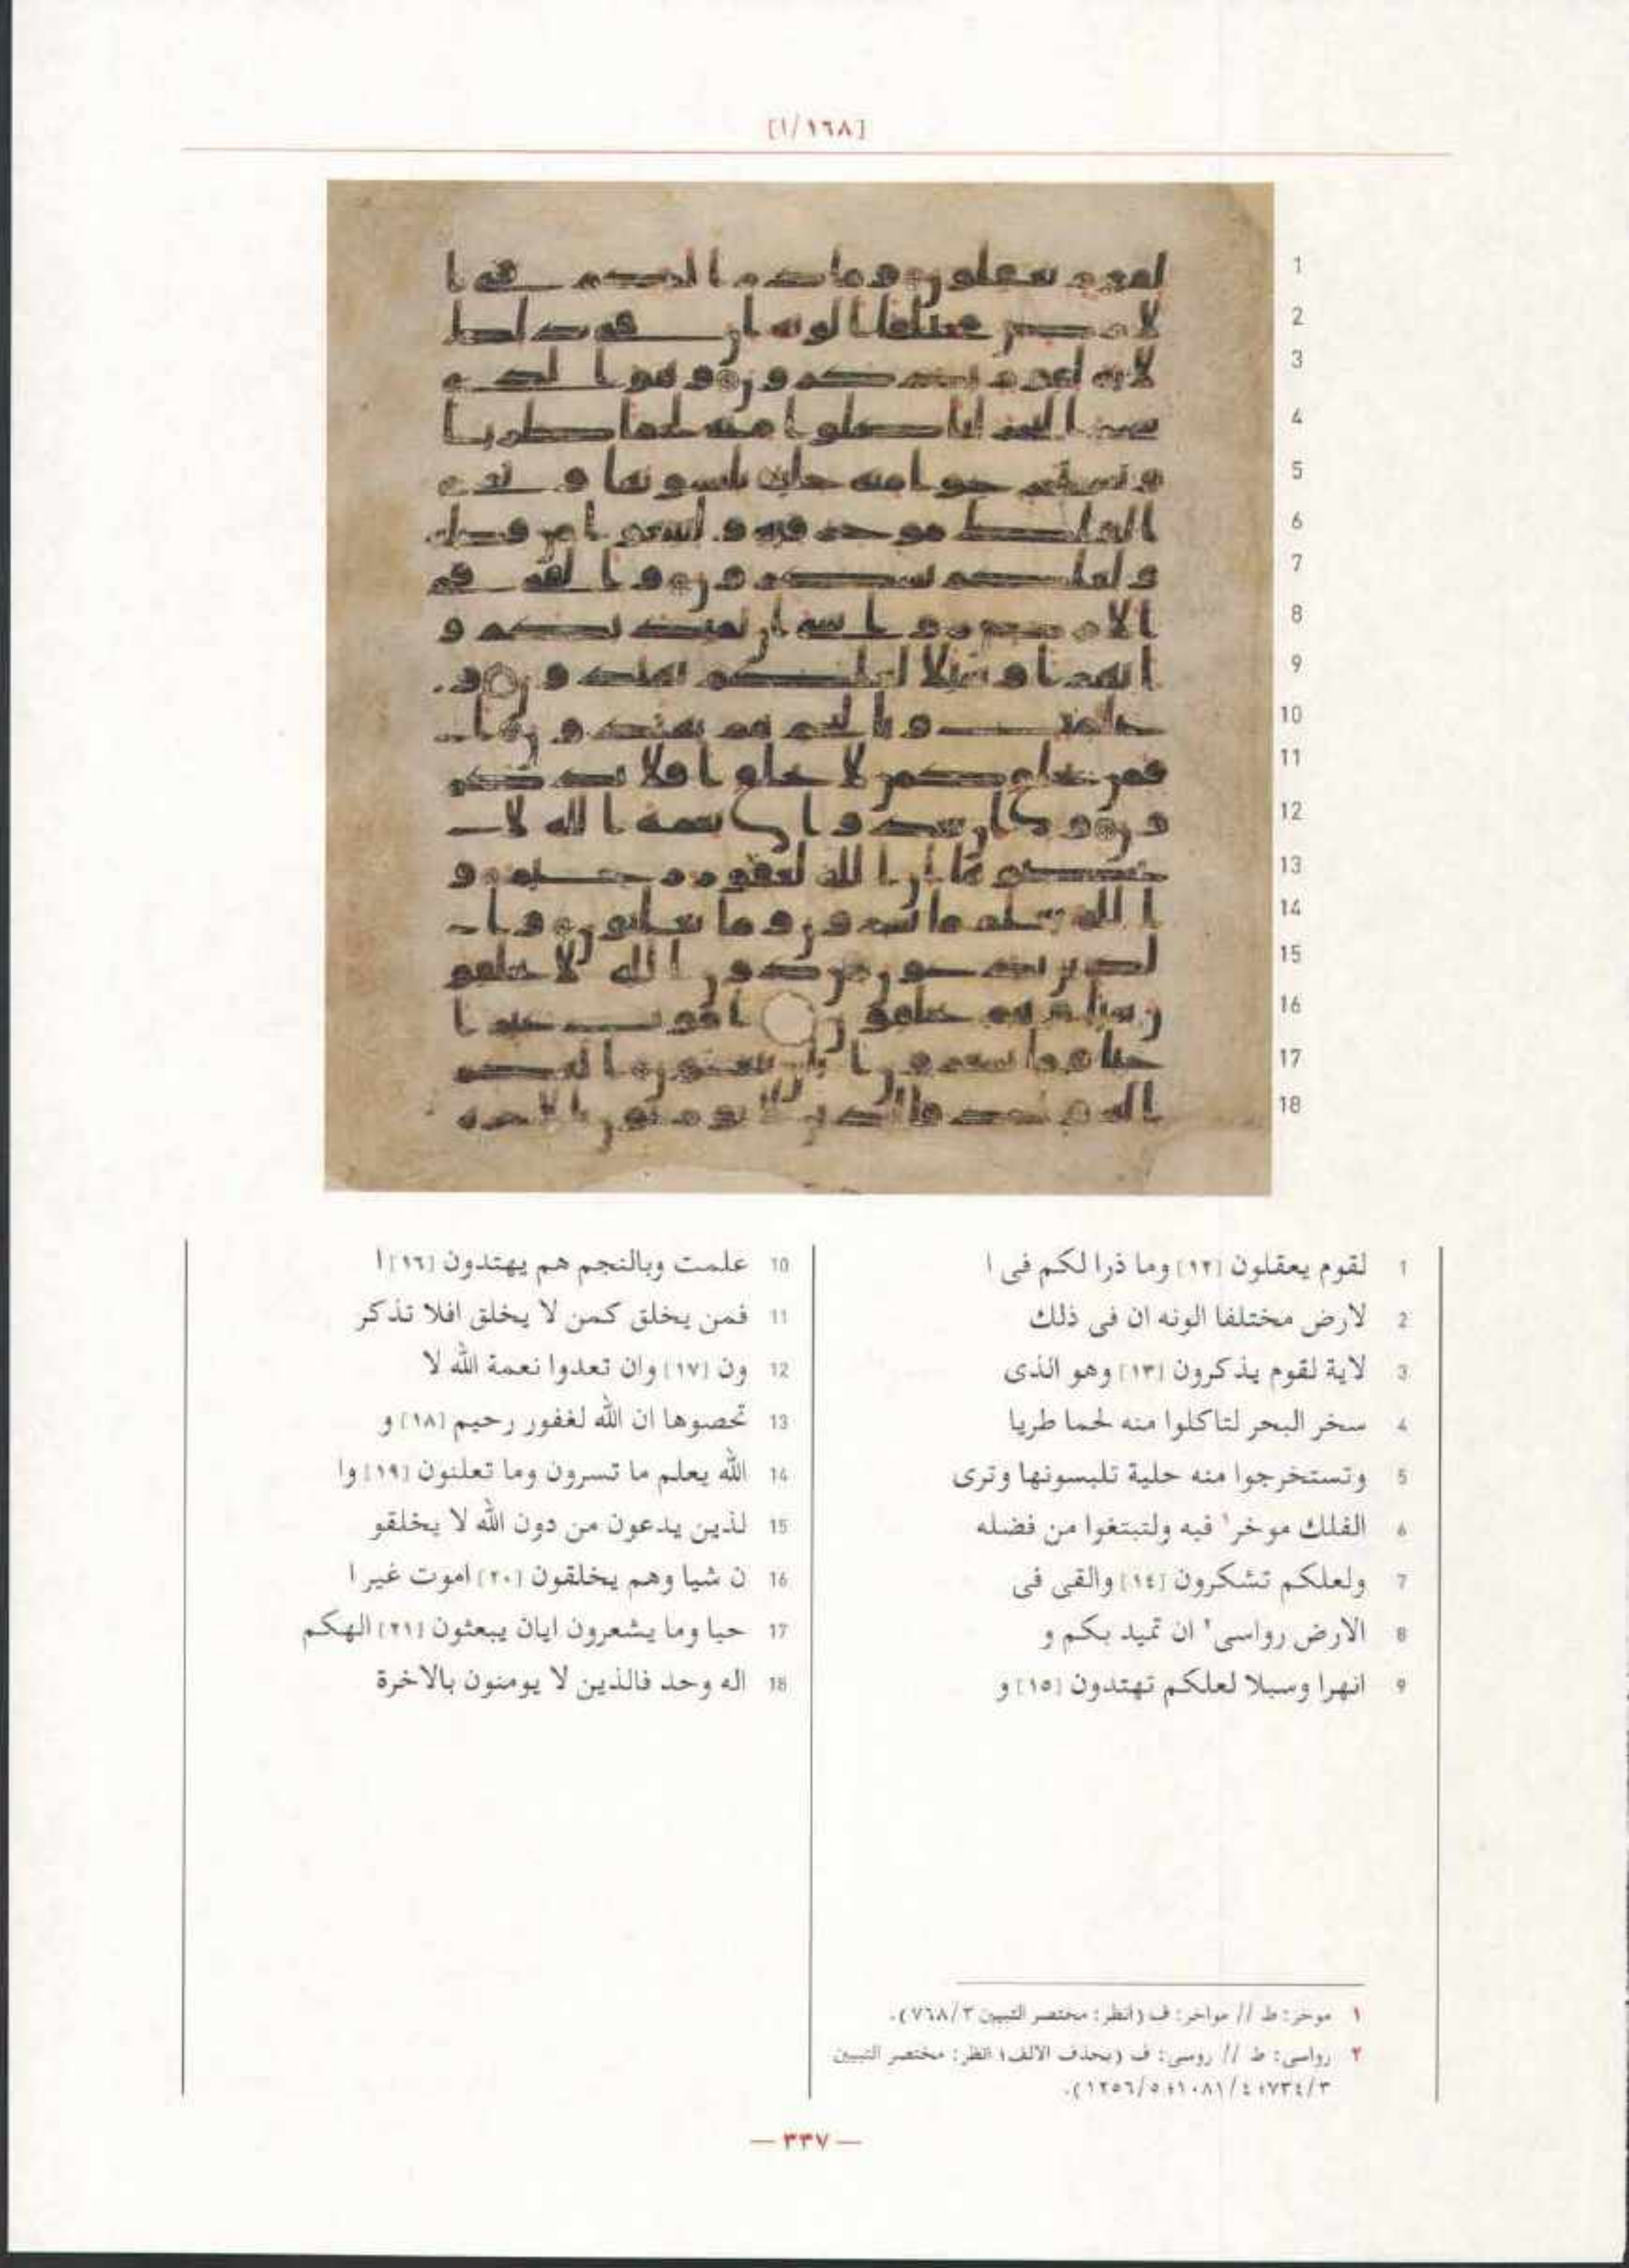 [١٦٨/١]
1 لقوم يعقلون [١٢] وما ذرا لكم فى ا
2 لارض مختلفا الونه ان فى ذلك
3 لاية لقوم يذكرون [١٣] وهو الذى
4 سخر البحر لتاكلوا منه لحما طريا
5 وتستخرجوا منه حلية تلبسونها وترى
6 الفلك موخر١ فيه ولتبتغوا من فضله
7 ولعلكم تشكرون [١٤] والقى فى
8 الارض رواسى٢ ان تميد بكم و
9 انهرا وسبلا لعلكم تهتدون [١٥] و
10 علمت وبالنجم هم يهتدون [١٦] ا
11 فمن يخلق كمن لا يخلق افلا تذكر
12 ون [١٧] وان تعدوا نعمة الله لا
13 تحصوها ان الله لغفور رحيم [١٨] و
14 الله يعلم ما تسرون وما تعلنون [١٩] وا
15 لذين يدعون من دون الله لا يخلقو
16 ن شيا وهم يخلقون [٢٠] اموت غير ا
17 حيا وما يشعرون ايان يبعثون [٢١] الهكم
18 اله وحد فالذين لا يومنون بالاخرة
١ موخر: ط // مواخر: ف (انظر: مختصر التبيين ٧٦٨/٣).
٢ رواسى: ط // روسى: ف (بحذف الالف؛ انظر: مختصر التبيين
٧٣٤/٣؛ ١٠٨١/٤؛ ١٢٥٦/٥).
— ٣٣٧ —